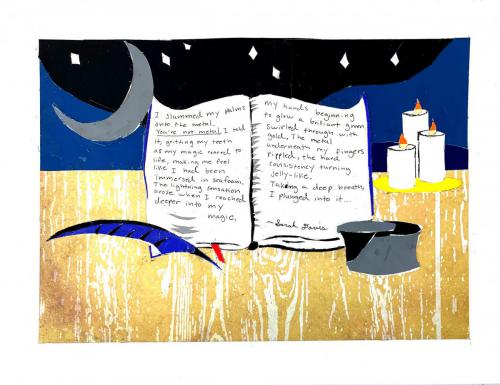 I slammed my palms
onto the metal.
You're not metal, I told
it, gritting my teeth
as my magic roared to
life, making me feel
like I had been
immersed in seafoam.
The lightning sensation
arose when I reached
deeper into my
magic,
my hands beginning
to glow a brilliant green
swirled through with
gold. The metal
underneath my fingers
rippled, the hard
consistency turning
jelly-like.
Taking a deep breath,
I plunged into it...
~Sarah Davis